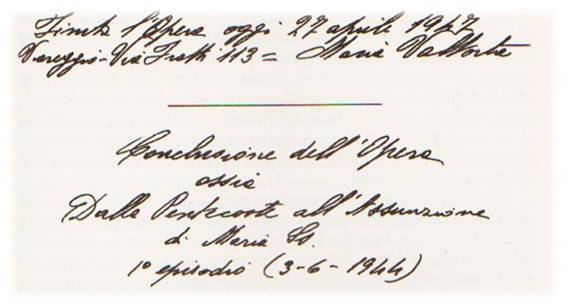 Finita l'Opera oggi 27 aprile 1947
Viareggio - Via Fratti 113 = Maria Valtorta
Conclusione dell'Opera
ossia
Dalla Pentecoste all'Assunzione
di Maria Ss.
1º episodio (3-6-1944)